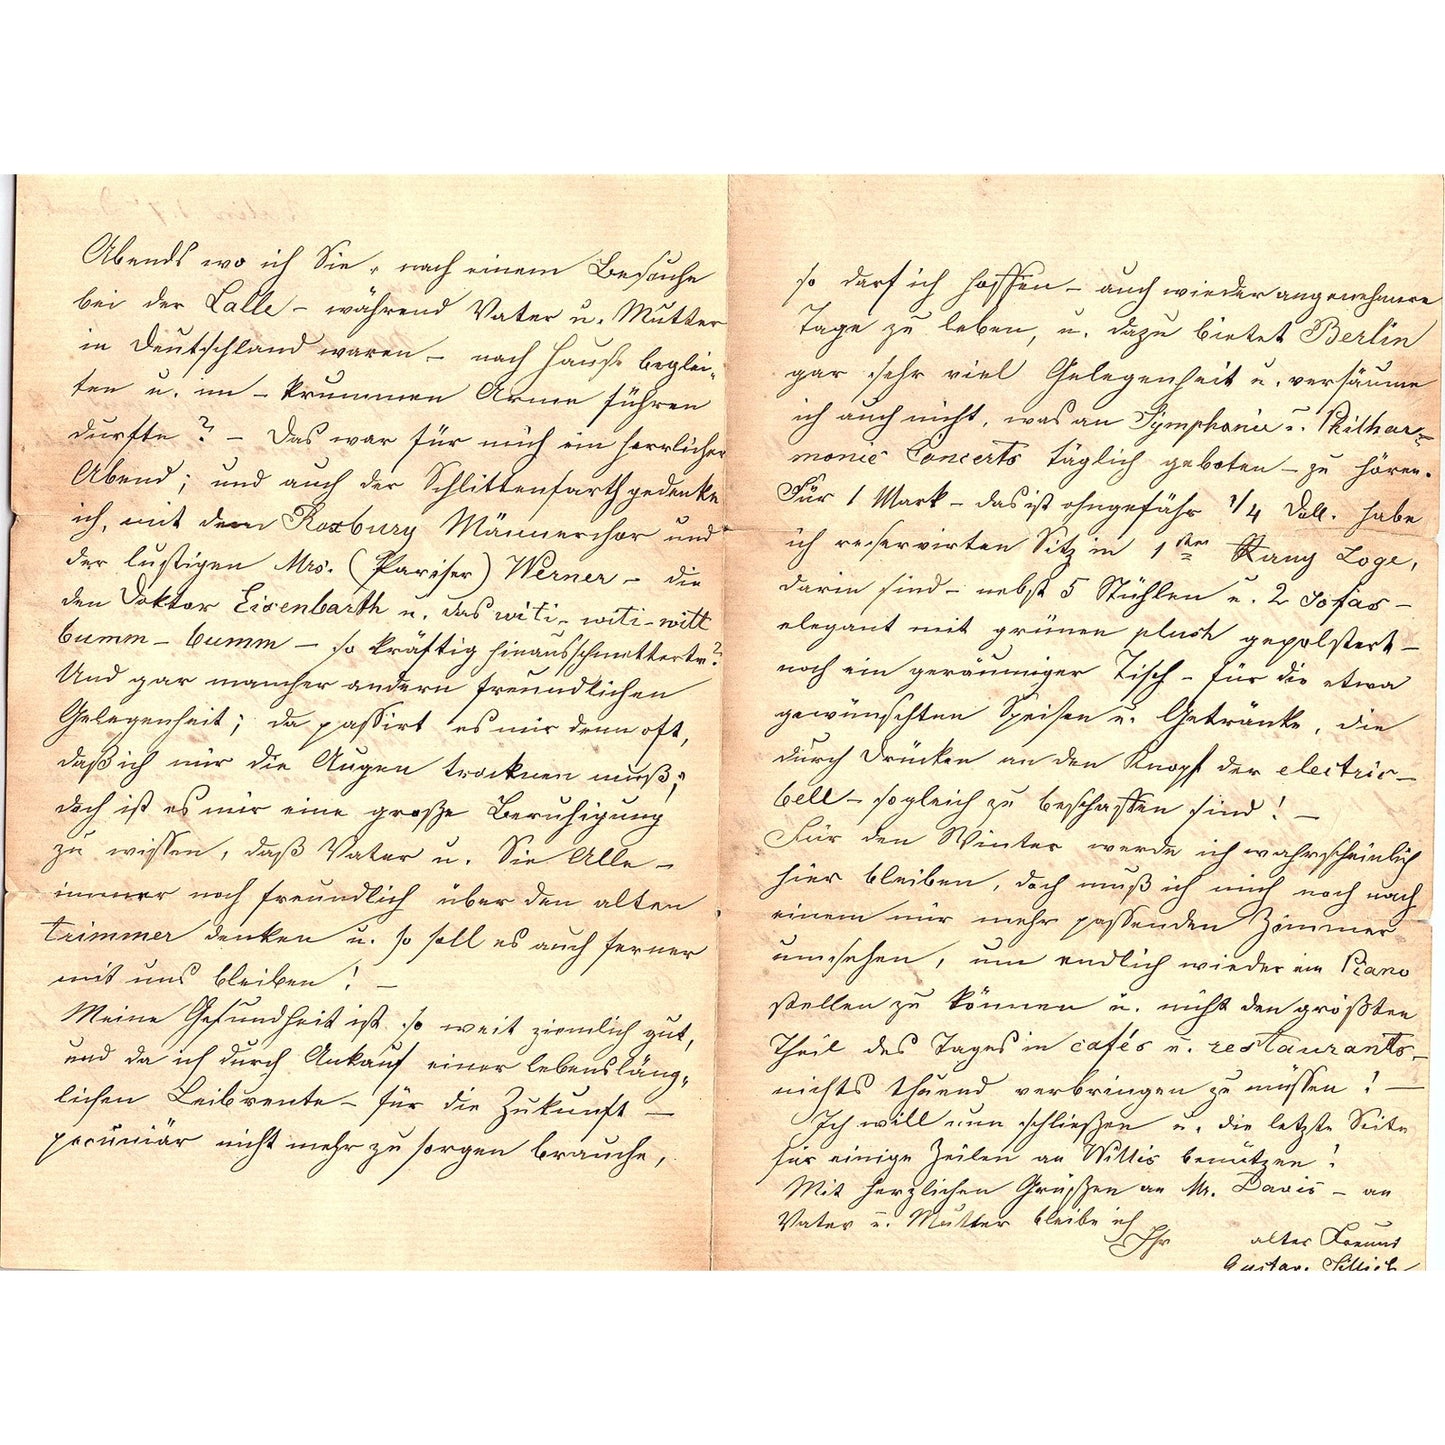 Abends wo ich Sie, nach einem Besuche
bei der Lalle – während Vater u. Mutter
in Deutschland waren – nach Hause beglei-
ten u. im – krummen Arme führen
durfte? – Das war für mich ein herrlicher
Abend; und auch der Schlittenfarth gedenke
ich, mit dem Roxbury Männerchor und
der lustigen Mrs. (Pariser) Werner – die
den Doktor Eisenbarth u. das witi- witi-witt
bumm – bumm – so kräftig hinausschmetterte?
Und gar mancher andern freundlichen
Gelegenheit; da passirt es mir denn oft,
daß ich mir die Augen trocknen muß;
doch ist es mir eine große Beruhigung
zu wissen, daß Vater u. Sie Alle –
immer noch freundlich über den alten
Trimmer denken u. so soll es auch ferner
mit uns bleiben! –
Meine Gesundheit ist so weit ziemlich gut,
und da ich durch Ankauf einer lebensläng-
lichen Leibrente – für die Zukunft –
pecuniär nicht mehr zu sorgen brauche,
so darf ich hoffen – auch wieder angenehmere
Tage zu leben, u. dazu bietet Berlin
gar sehr viel Gelegenheit u. versäume
ich auch nicht, was an Symphonie u. Philhar-
monic Concerts täglich geboten – zu hören.
Für 1 Mark – das ist ohngefähr 1/4 Doll. habe
ich reservirten Sitz in 1ster Rang Loge,
darin sind – nebst 5 Stühlen u. 2 Sofas –
elegant mit grünen plush gepolstert –
noch ein geräumiger Tisch – für die etwa
gewünschten Speisen u. Getränke, die
durch Drücken an den Knopf der electric-
bell – sogleich zu beschaffen sind! –
Für den Winter werde ich wahrscheinlich
hier bleiben, doch muß ich mich noch nach
einem mir mehr passenden Zimmer
umsehen, um endlich wieder ein Piano
stellen zu können u. nicht den größten
Theil des Tages in cafés u. restaurants –
nichts thuend verbringen zu müssen! –
Ich will nun schließen u. die letzte Seite
für einige Zeilen an Willis benützen!
Mit herzlichen Grüßen an Mr. Davis – an
Vater u. Mutter bleibe ich
Ihr alter Freund
Gustav